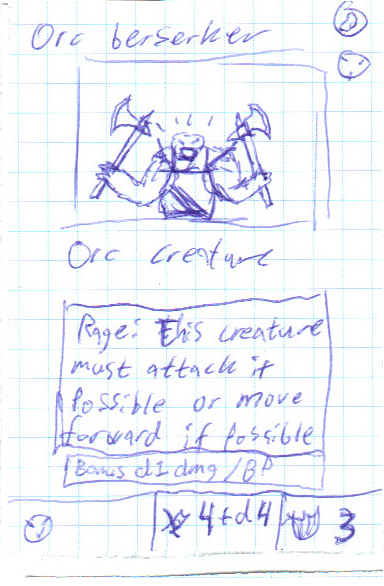 Orc berserker
Orc creature
Rage: this creature
must attack if
possible or move
forward if possible
Bonus d1 dmg /BP
4+d4
3